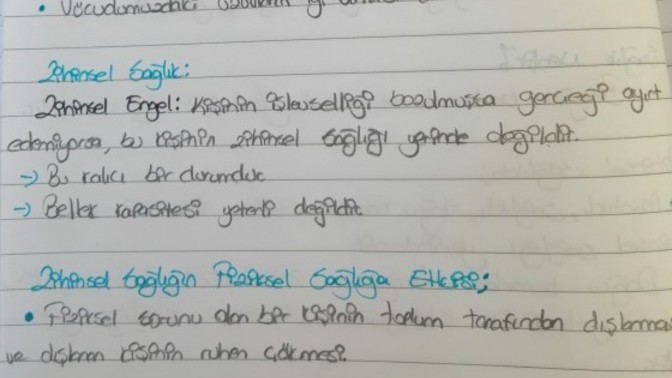 • Vücudumuzdaki
Zihinsel Sağlık:
Zihinsel Engel: Kişinin işlevselliği bozulmuşsa gerçeği ayırt
edemiyorsa, bu kişinin zihinsel sağlığı yerinde değildir.
→ Bu kalıcı bir durumdur
→ Bellek kapasitesi yeterli değildir.
Zihinsel Sağlığın Fiziksel Sağlığa Etkisi;
• Fiziksel sorunu olan bir kişinin toplum tarafından dışlanması
ve dışlanan kişinin ruhen çökmesi.